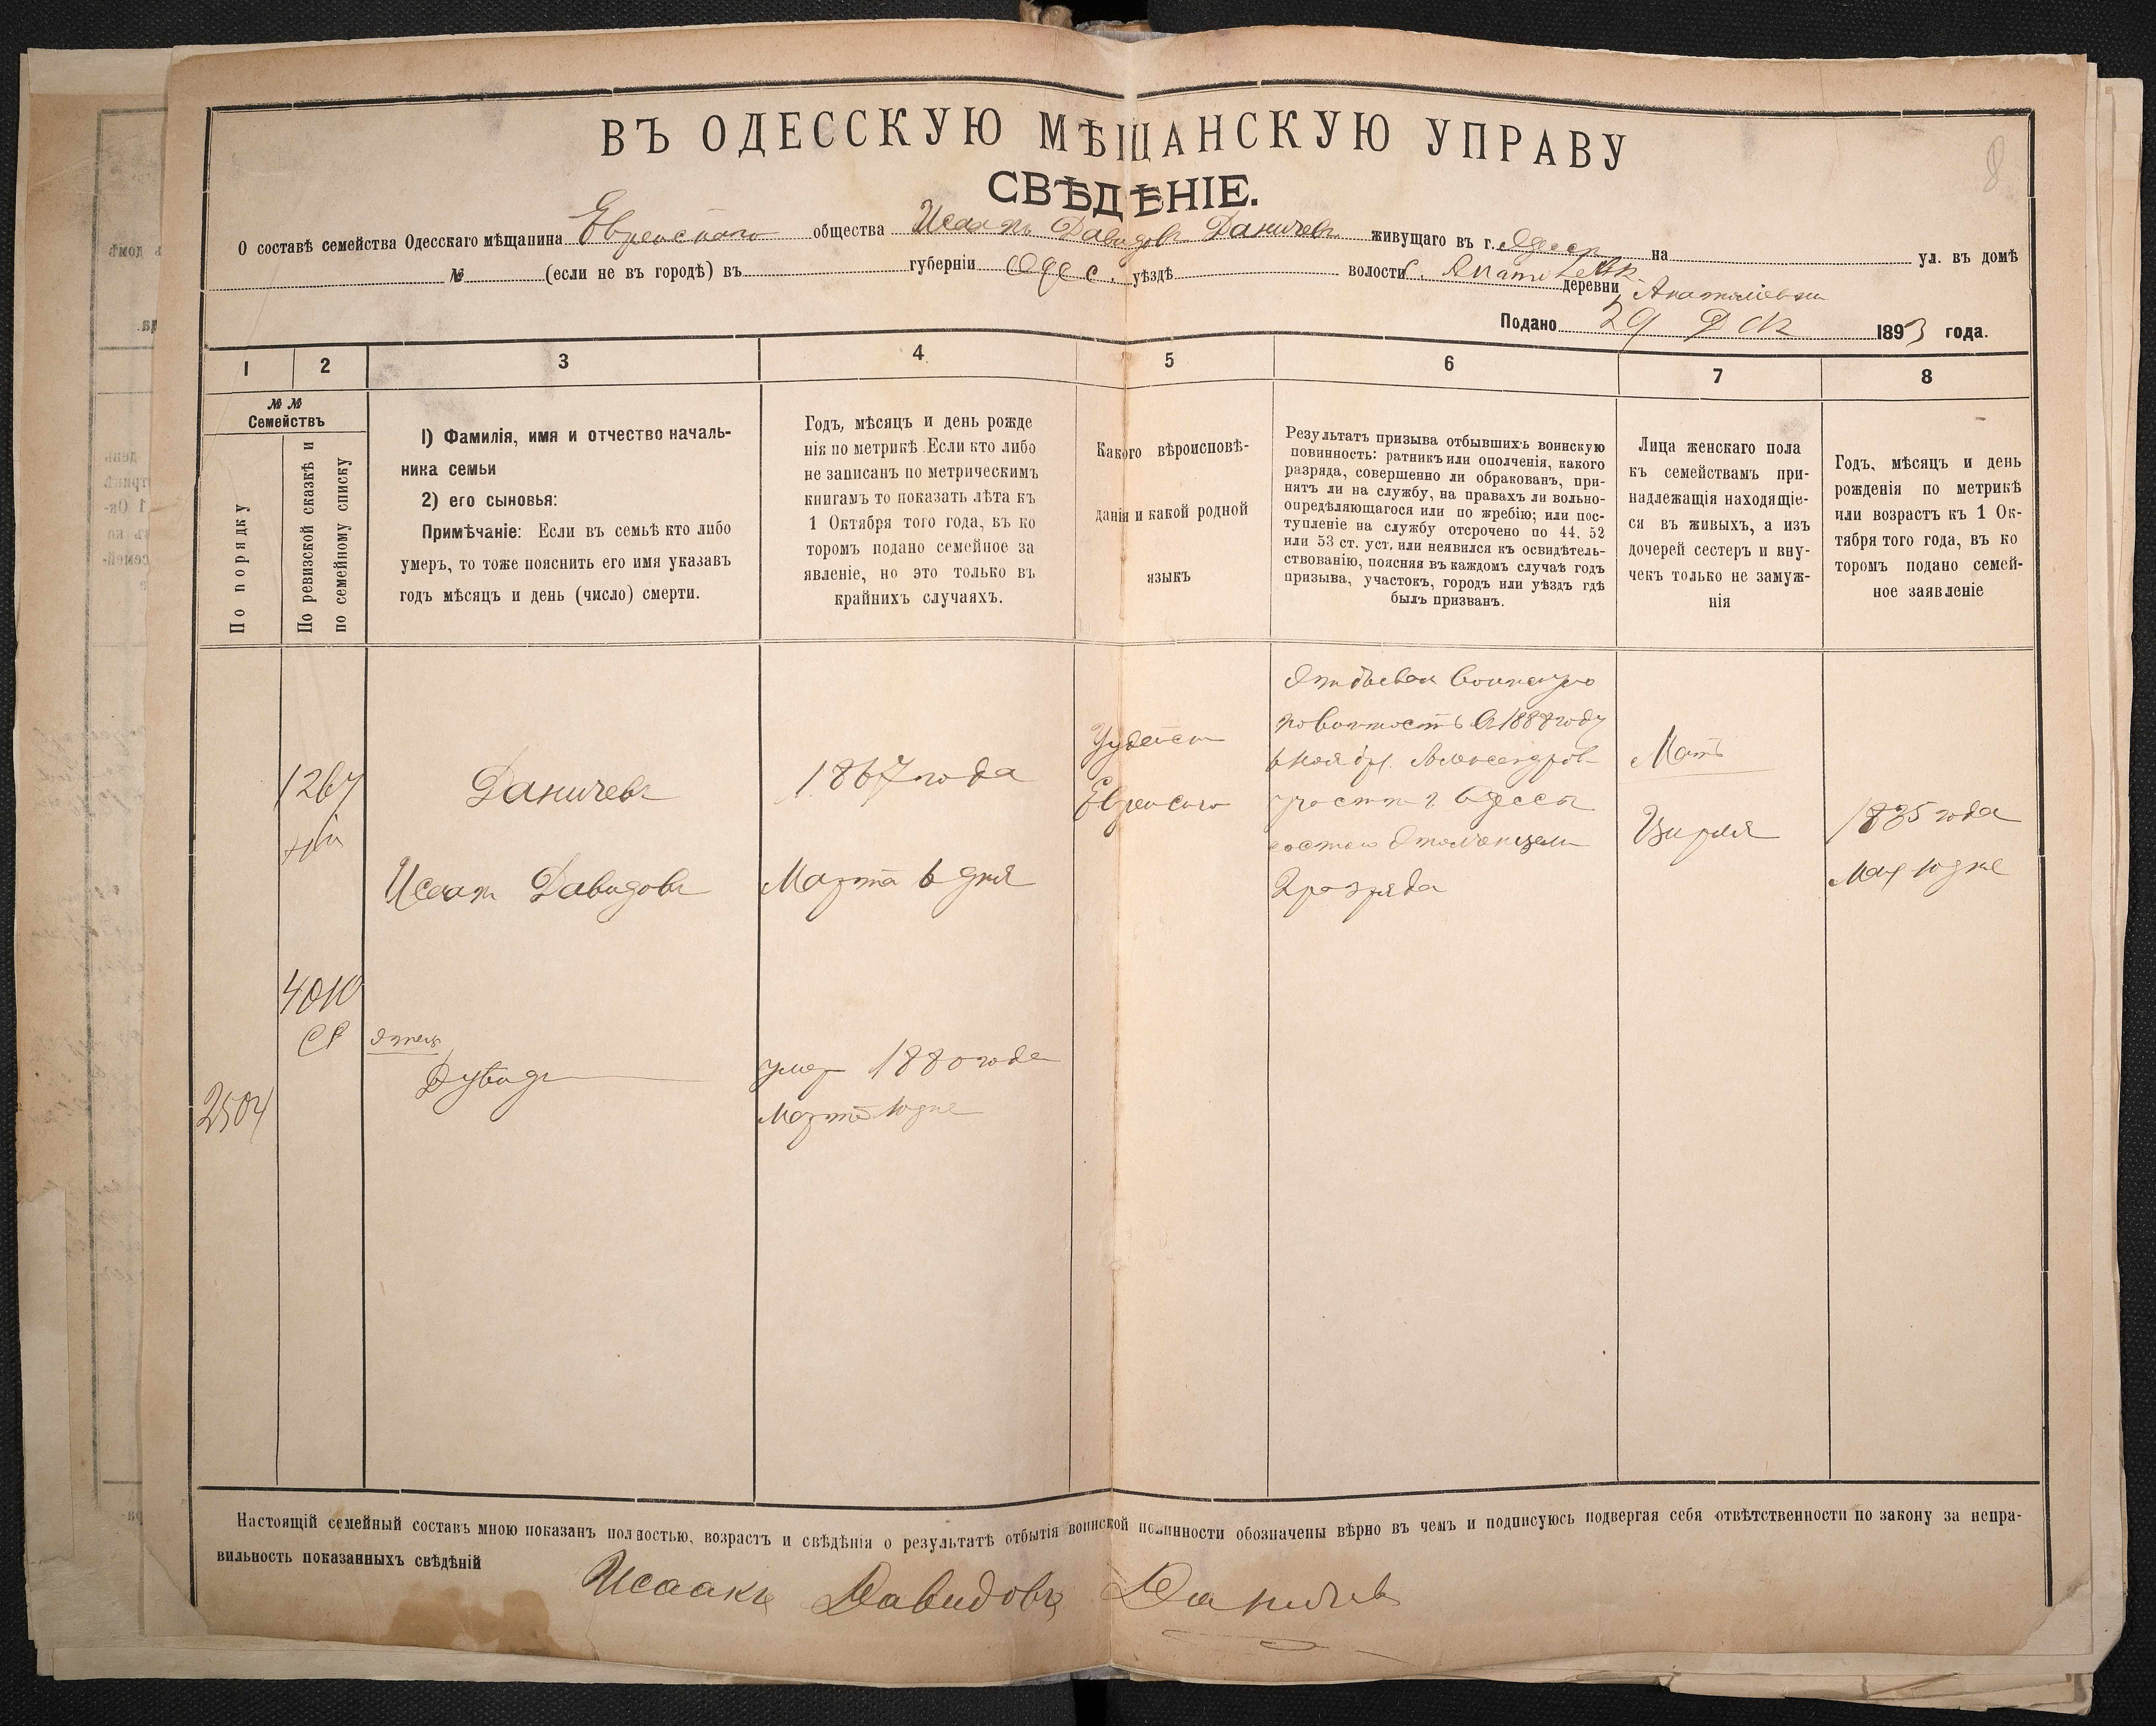 8
ВЪ ОДЕССКУЮ МѢЩАНСКУЮ УПРАВУ
СВѢДѢНІЕ.
О составѣ семейства Одесскаго мѣщанина Еврейскаго общества Исаакъ Давидовъ Даничевъ живущаго въ г. Одессѣ на ул. въ домѣ
№ (если не въ городѣ) въ губерніи Одес. уѣздѣ волости деревни Анатоліевки
Подано 29 Дек 1893 года.
1 2 3 4 5 6 7 8
№ №
Семействъ
По порядку
По ревизской сказкѣ и
по семейному списку
1) Фамилія, имя и отчество началь-
ника семьи
2) его сыновья:
Примѣчаніе: Если въ семьѣ кто либо
умеръ, то тоже пояснить его имя указавъ
годъ мѣсяцъ и день (число) смерти.
Годъ, мѣсяцъ и день рожде
нія по метрикѣ. Если кто либо
не записанъ по метрическимъ
книгамъ то показать лѣта къ
1 Октября того года, въ ко
торомъ подано семейное за
явленіе, но это только въ
крайнихъ случаяхъ.
Какого вѣроисповѣ-
данія и какой родной
языкъ
Результатъ призыва отбывшихъ воинскую
повинность: ратникъ или ополченія, какого
разряда, совершенно ли обракованъ, при-
нятъ ли на службу, на правахъ ли вольно-
опредѣляющагося или по жребію; или пос-
тупленіе на службу отсрочено по 44, 52
или 53 ст. уст. или неявился къ освидѣтель-
ствованію, поясняя въ каждомъ случаѣ годъ
призыва, участокъ, городъ или уѣздъ гдѣ
былъ призванъ.
Лица женскаго пола
къ семействамъ при-
надлежащія находящіе-
ся въ живыхъ, а изъ
дочерей сестеръ и вну-
чекъ только не замуж-
нія
Годъ, мѣсяцъ и день
рожденія по метрикѣ
или возрастъ къ 1 Ок-
тября того года, въ ко
торомъ подано семей-
ное заявленіе
1267
4010
2504
Даничевъ
Исаакъ Давидовъ
отецъ
Дувидъ
1867 года
Марта 6 дня
умер 1880 года
Марта 10 дне
Иудейск
Еврейского
Отбывал воинскую
повинность в 1888 году
ноября Александров
участк г. Одессы
2 разряда
Мать
Цирля
1835 года
Мая 10 дне
Настоящій семейный составъ мною показанъ полностью, возрастъ и свѣдѣнія о результатѣ отбытія воинской повинности обозначены вѣрно въ чемъ и подписуюсь подвергая себя отвѣтственности по закону за непра-
вильность показанныхъ свѣдѣній
Исаакъ Давидовъ Даничевъ